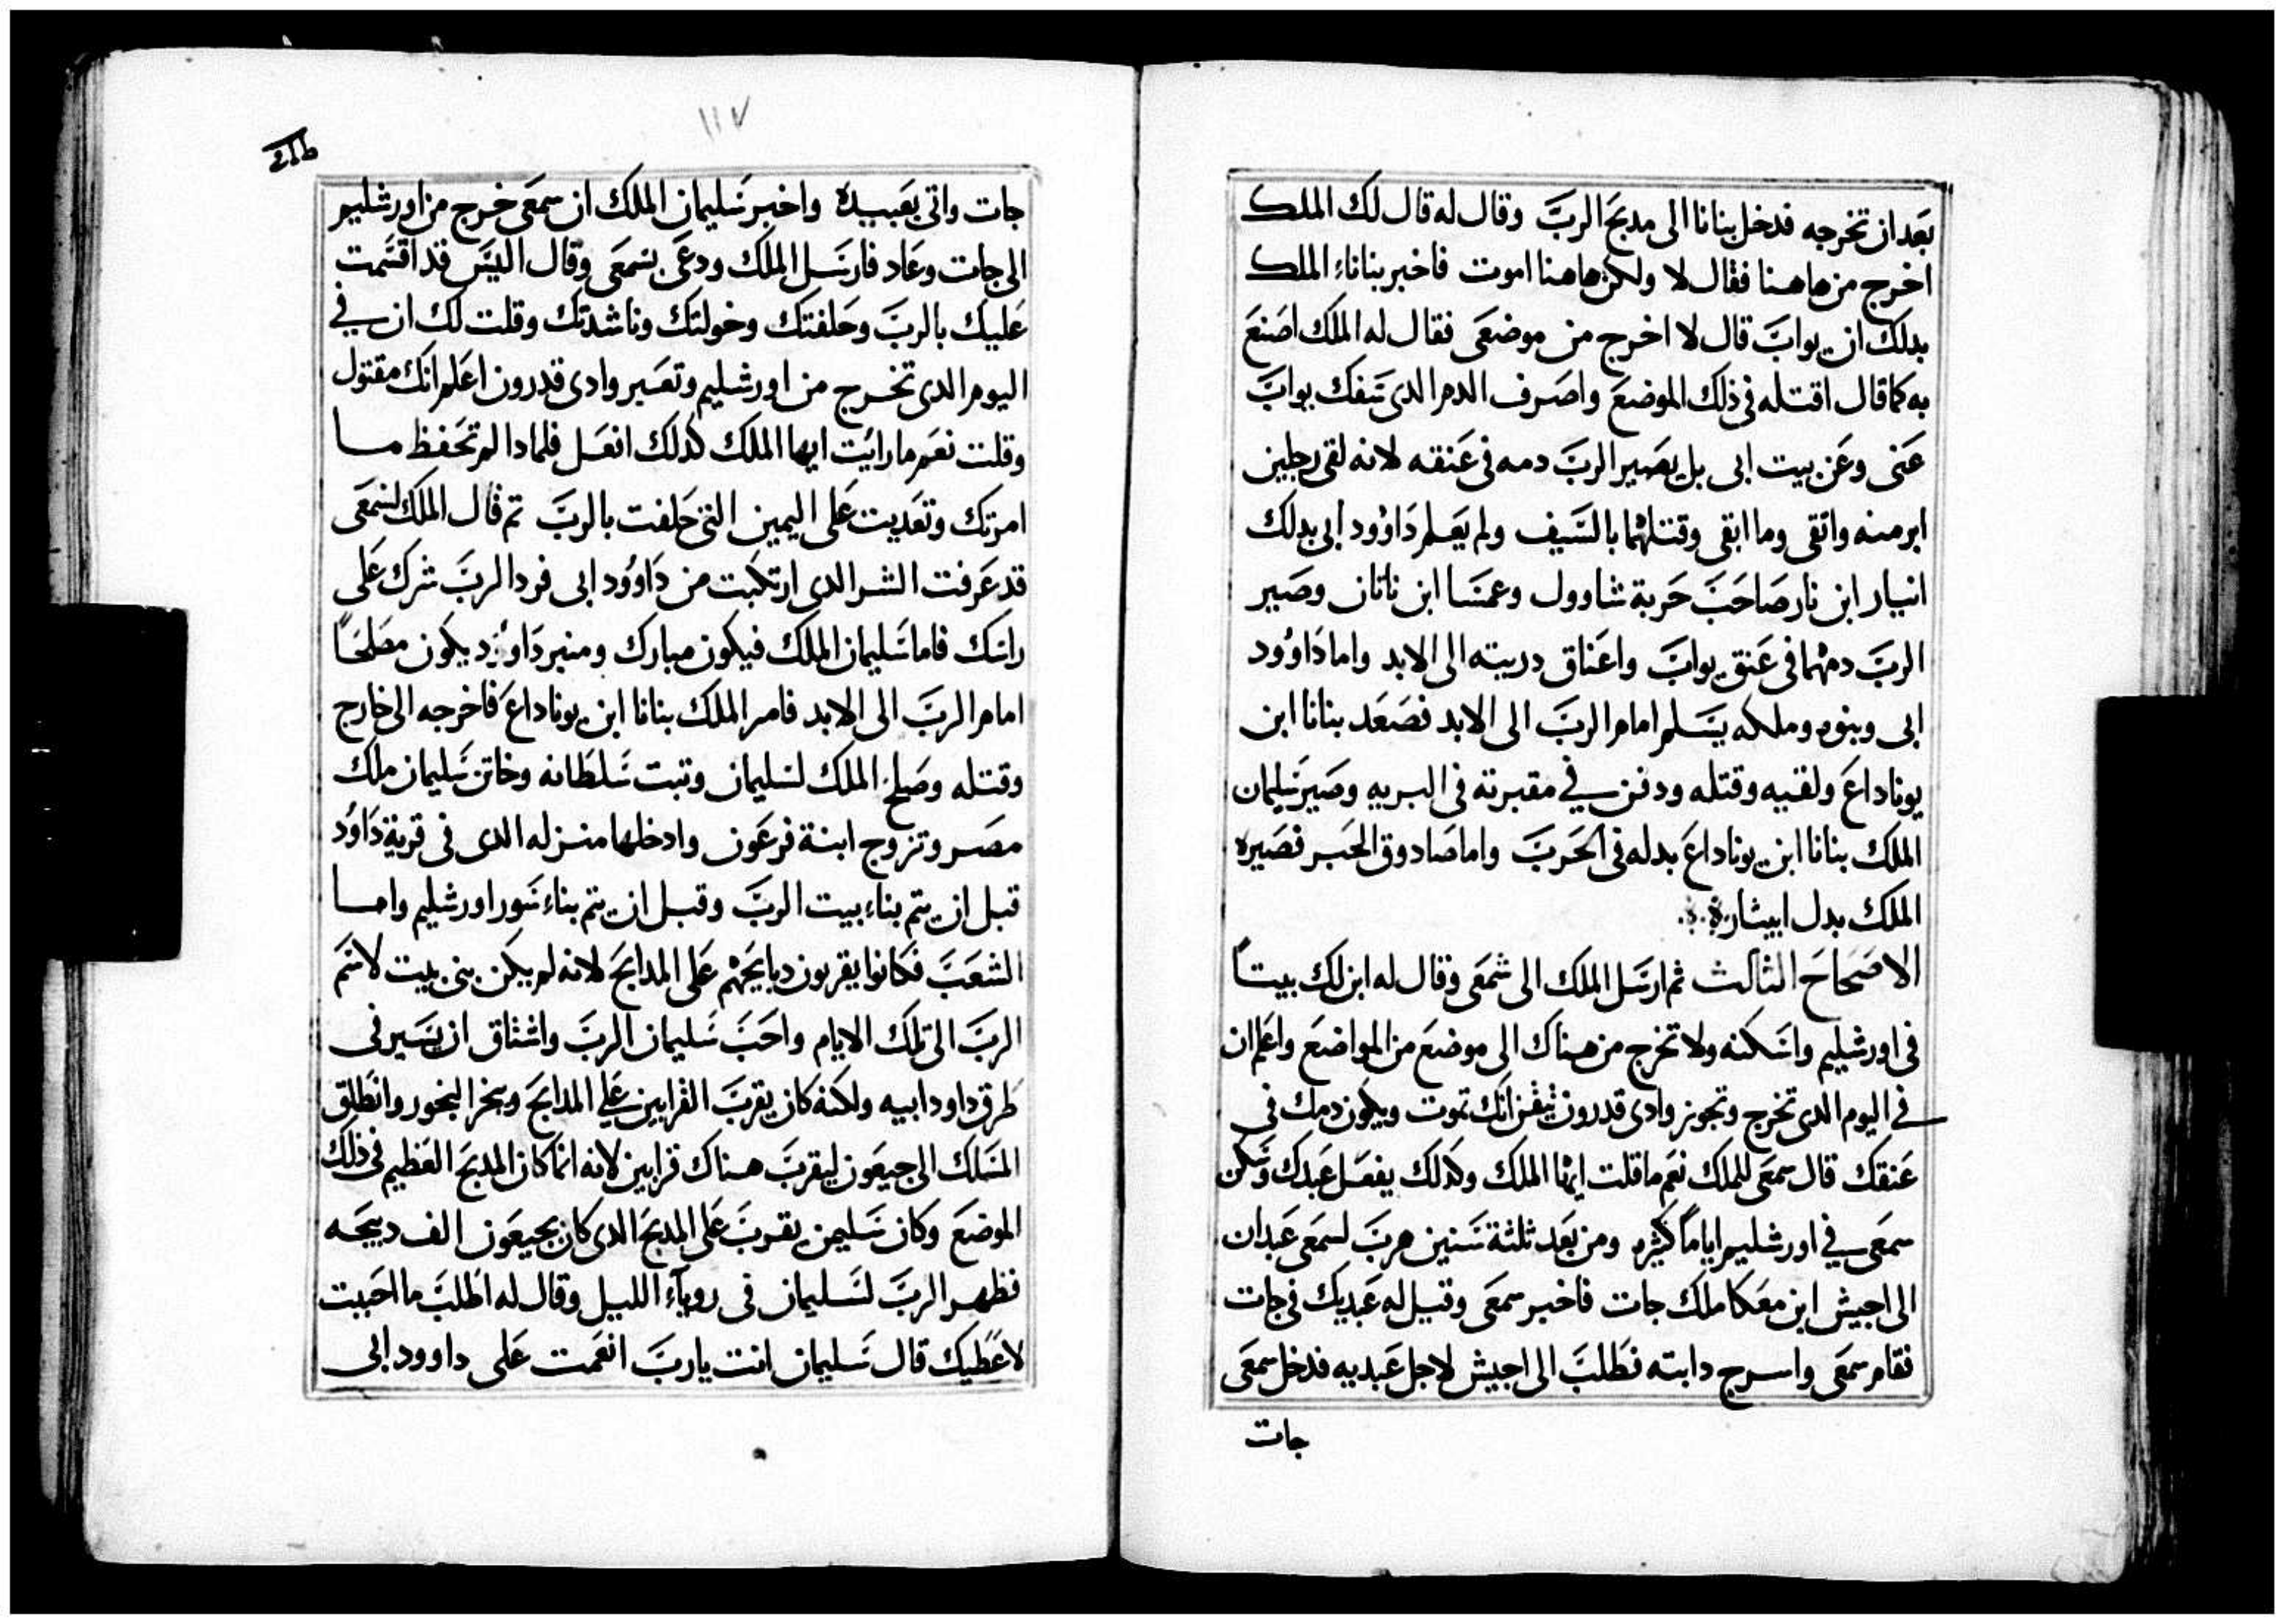 بعد ان تخرجه فدخل بنانا الى مدبح الرب وقال له قال لك الملك
اخرج من هاهنا فقال لا ولكن هاهنا اموت فاخبر بناناء الملك
بدلك ان يواب قال لا اخرج من موضعى فقال له الملك اصنع
به كما قال اقتله فى ذلك الموضع واصرف الدم الدى سفك يواب
عنى وعن بيت ابى بل يصير الرب دمه فى عنقه لانه لقى رجلين
ابر منه واتقى وما ابقى وقتلهما بالسيف ولم يعلم داوود ابى بدلك
انيار ابن نار صاحب حربة شاوول وعمسا ابن ناتان وصير
الرب دمهما فى عنق يواب واعناق دريته الى الابد واما داوود
ابى وبنوه وملكه يسلم امام الرب الى الابد فصعد بنانا ابن
يوناداع ولقيه وقتله ودفن في مقبرته فى البريه وصير سليمان
الملك بنانا ابن يوناداع بدله فى الحرب واما صادوق الحبر فصيره
الملك بدل ابيثار
الاصحاح الثالث ثم ارسل الملك الى شمعى وقال له ابن لك بيتاً
فى اورشليم واسكنه ولا تخرج من هناك الى موضع من المواضع واعلم ان
في اليوم الدى تخرج وتجوز وادى قدرون تيقن انك تموت ويكون دمك فى
عنقك قال سمعى للملك نعم ما قلت ايها الملك وكدلك يفعل عبدك وسكن
سمعى في اورشليم اياماً كثيره ومن بعد ثلثة سنين هرب لسمعى عبدان
الى اجيش ابن معكا ملك جات فاخبر سمعى وقيل له عبديك فى جات
فقام سمعى واسرج دابته فطلب الى اجيش لاجل عبديه فدخل سمعى
جات
١١٧
جات واتى بعبيده واخبر سليمان الملك ان سمعى خرج من اورشليم
الى جات وعاد فارسل الملك ودعى بسمعى وقال اليس قد اقسمت
عليك بالرب وحلفتك وخولتك وناشدتك وقلت لك ان في
اليوم الدى تخرج من اورشليم وتعبر وادى قدرون اعلم انك مقتول
وقلت نعم ما رايت ايها الملك كدلك افعل فلمادا لم تحفظ ما
امرتك وتعديت على اليمين التى حلفت بالرب تم قال الملك لسمعى
قد عرفت الشر الدى ارتكبت من داوود ابى فود الرب شرك على
راسك فاما سليمان الملك فيكون مبارك ومنبر داوود يكون مصلحاً
امام الرب الى الابد فامر الملك بنانا ابن يوناداع فاخرجه الى خارج
وقتله وصلح الملك لسليمان وتبت سلطانه وخاتن سليمان ملك
مصر وتزوج ابنة فرعون وادخلها منزله الدى فى قرية داوُد
قبل ان يتم بناء بيت الرب وقبل ان يتم بناء سور اورشليم واما
الشعب فكانوا يقربون دبايحهم على المدابح لانه لم يكن بنى بيت لاسم
الرب الى تلك الايام واحب سليمان الرب واشتاق ان يسير فى
طرق داود ابيه ولكنه كان يقرب القرابين على المدابح ويبخر البخور وانطلق
الملك الى جيعون ليقرب هناك قرابين لانه انما كان المدبح العظيم فى ذلك
الموضع وكان سليمن يقرب على المدبح الدى كان بجيعون الف دبيحه
فظهر الرب لسليمان فى روياء الليل وقال له اطلب ما احببت
لاعطيك قال سليمان انت يارب انعمت على داوود ابى